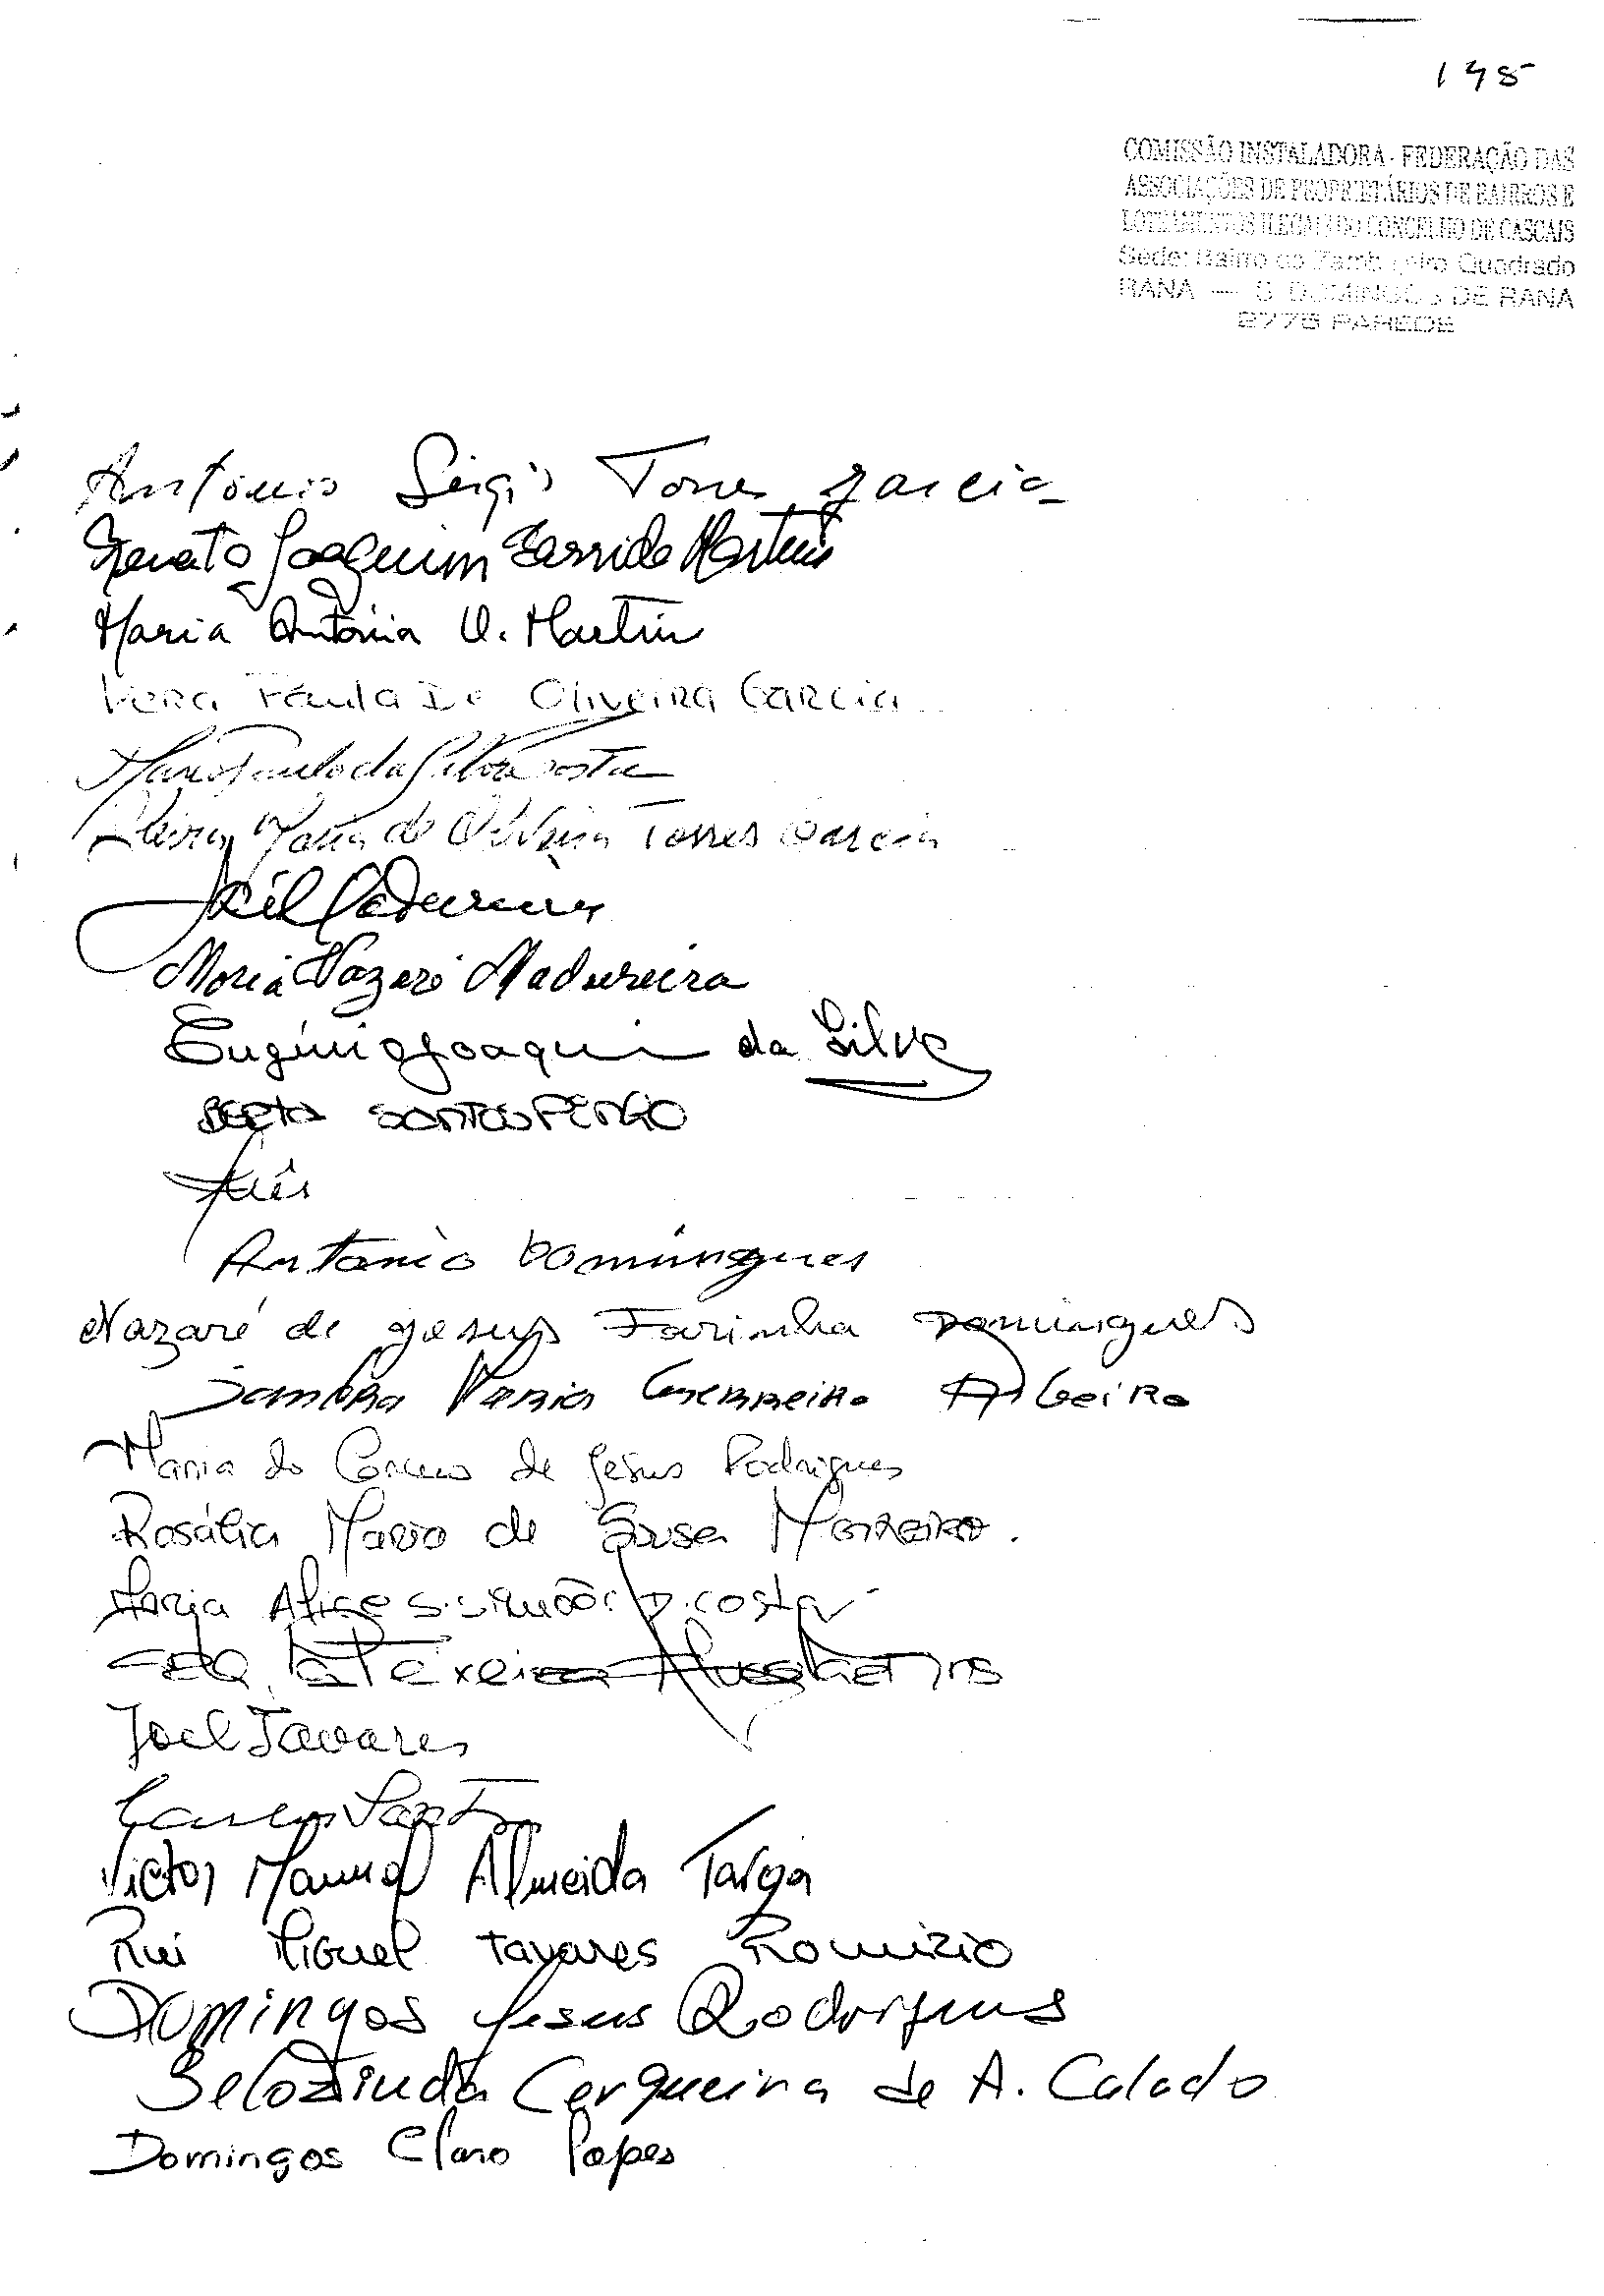 145
COMISSÃO INSTALADORA - FEDERAÇÃO DAS
ASSOCIAÇÕES DE PROPRIETÁRIOS DE BAIRROS E
LOTEAMENTOS ILEGAIS DO CONCELHO DE CASCAIS
Sede: Bairro do Quadrado
RANA — S DOMINGOS DE RANA
2775 PAREDE
António Sérgio Torres Garcia
Renato Joaquim Garrido Martins
Maria Antónia V. Martins
Vera Paula De Oliveira Garcia
Paulo da Silva Costa
Maria de Oliveira Torres Garcia
Madureira
Maria Nazaré Madureira
Eugénio Joaquim da Silva
Berta Santos
Inês
António Domingues
Nazaré de Jesus Farinha Domingues
Sandra Maria Guerreiro Ribeiro
Maria do Carmo de Jesus Rodrigues
Rosália Maria de Sousa Monteiro.
Maria Alice S. Simões D. Costa
Teixeira
Joel Tavares
Carlos
Victor Manuel Almeida Targa
Rui Miguel Tavares Romizio
Domingos Jesus Rodrigues
Belozinda Cerqueira de A. Calado
Domingos Claro Lopes